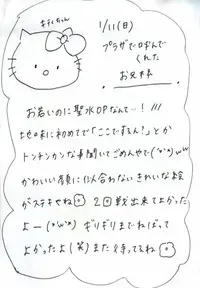 キティちゃん
1/11(日)
プラザでヨばんで
くれた
お兄様
お若いのに聖水OPなんて…!!!!
地味に初めてで「ここでするん!」とか
トンチンカンな事聞いてごめんやで(^o^)ww
かわいい顔に似合わないきれいなお絵
がステキやね 2回戦出来てよかった
よー(^w^) ギリギリまでねばって
よかったよ(笑)また待ってるね